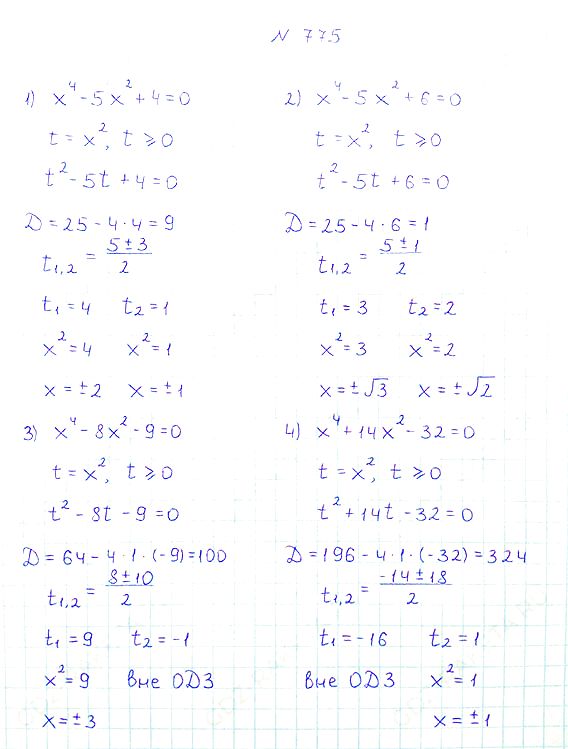 N 775
1) x⁴ - 5x² + 4 = 0
t = x², t ⩾ 0
t² - 5t + 4 = 0
D = 25 - 4 · 4 = 9
t₁,₂ = (5 ± 3)/2
t₁ = 4 t₂ = 1
x² = 4 x² = 1
x = ±2 x = ±1
2) x⁴ - 5x² + 6 = 0
t = x², t ⩾ 0
t² - 5t + 6 = 0
D = 25 - 4 · 6 = 1
t₁,₂ = (5 ± 1)/2
t₁ = 3 t₂ = 2
x² = 3 x² = 2
x = ±√3 x = ±√2
3) x⁴ - 8x² - 9 = 0
t = x², t ⩾ 0
t² - 8t - 9 = 0
D = 64 - 4 · 1 · (-9) = 100
t₁,₂ = (8 ± 10)/2
t₁ = 9 t₂ = -1
x² = 9 вне ОДЗ
x = ±3
4) x⁴ + 14x² - 32 = 0
t = x², t ⩾ 0
t² + 14t - 32 = 0
D = 196 - 4 · 1 · (-32) = 324
t₁,₂ = (-14 ± 18)/2
t₁ = -16 t₂ = 1
вне ОДЗ x² = 1
x = ±1